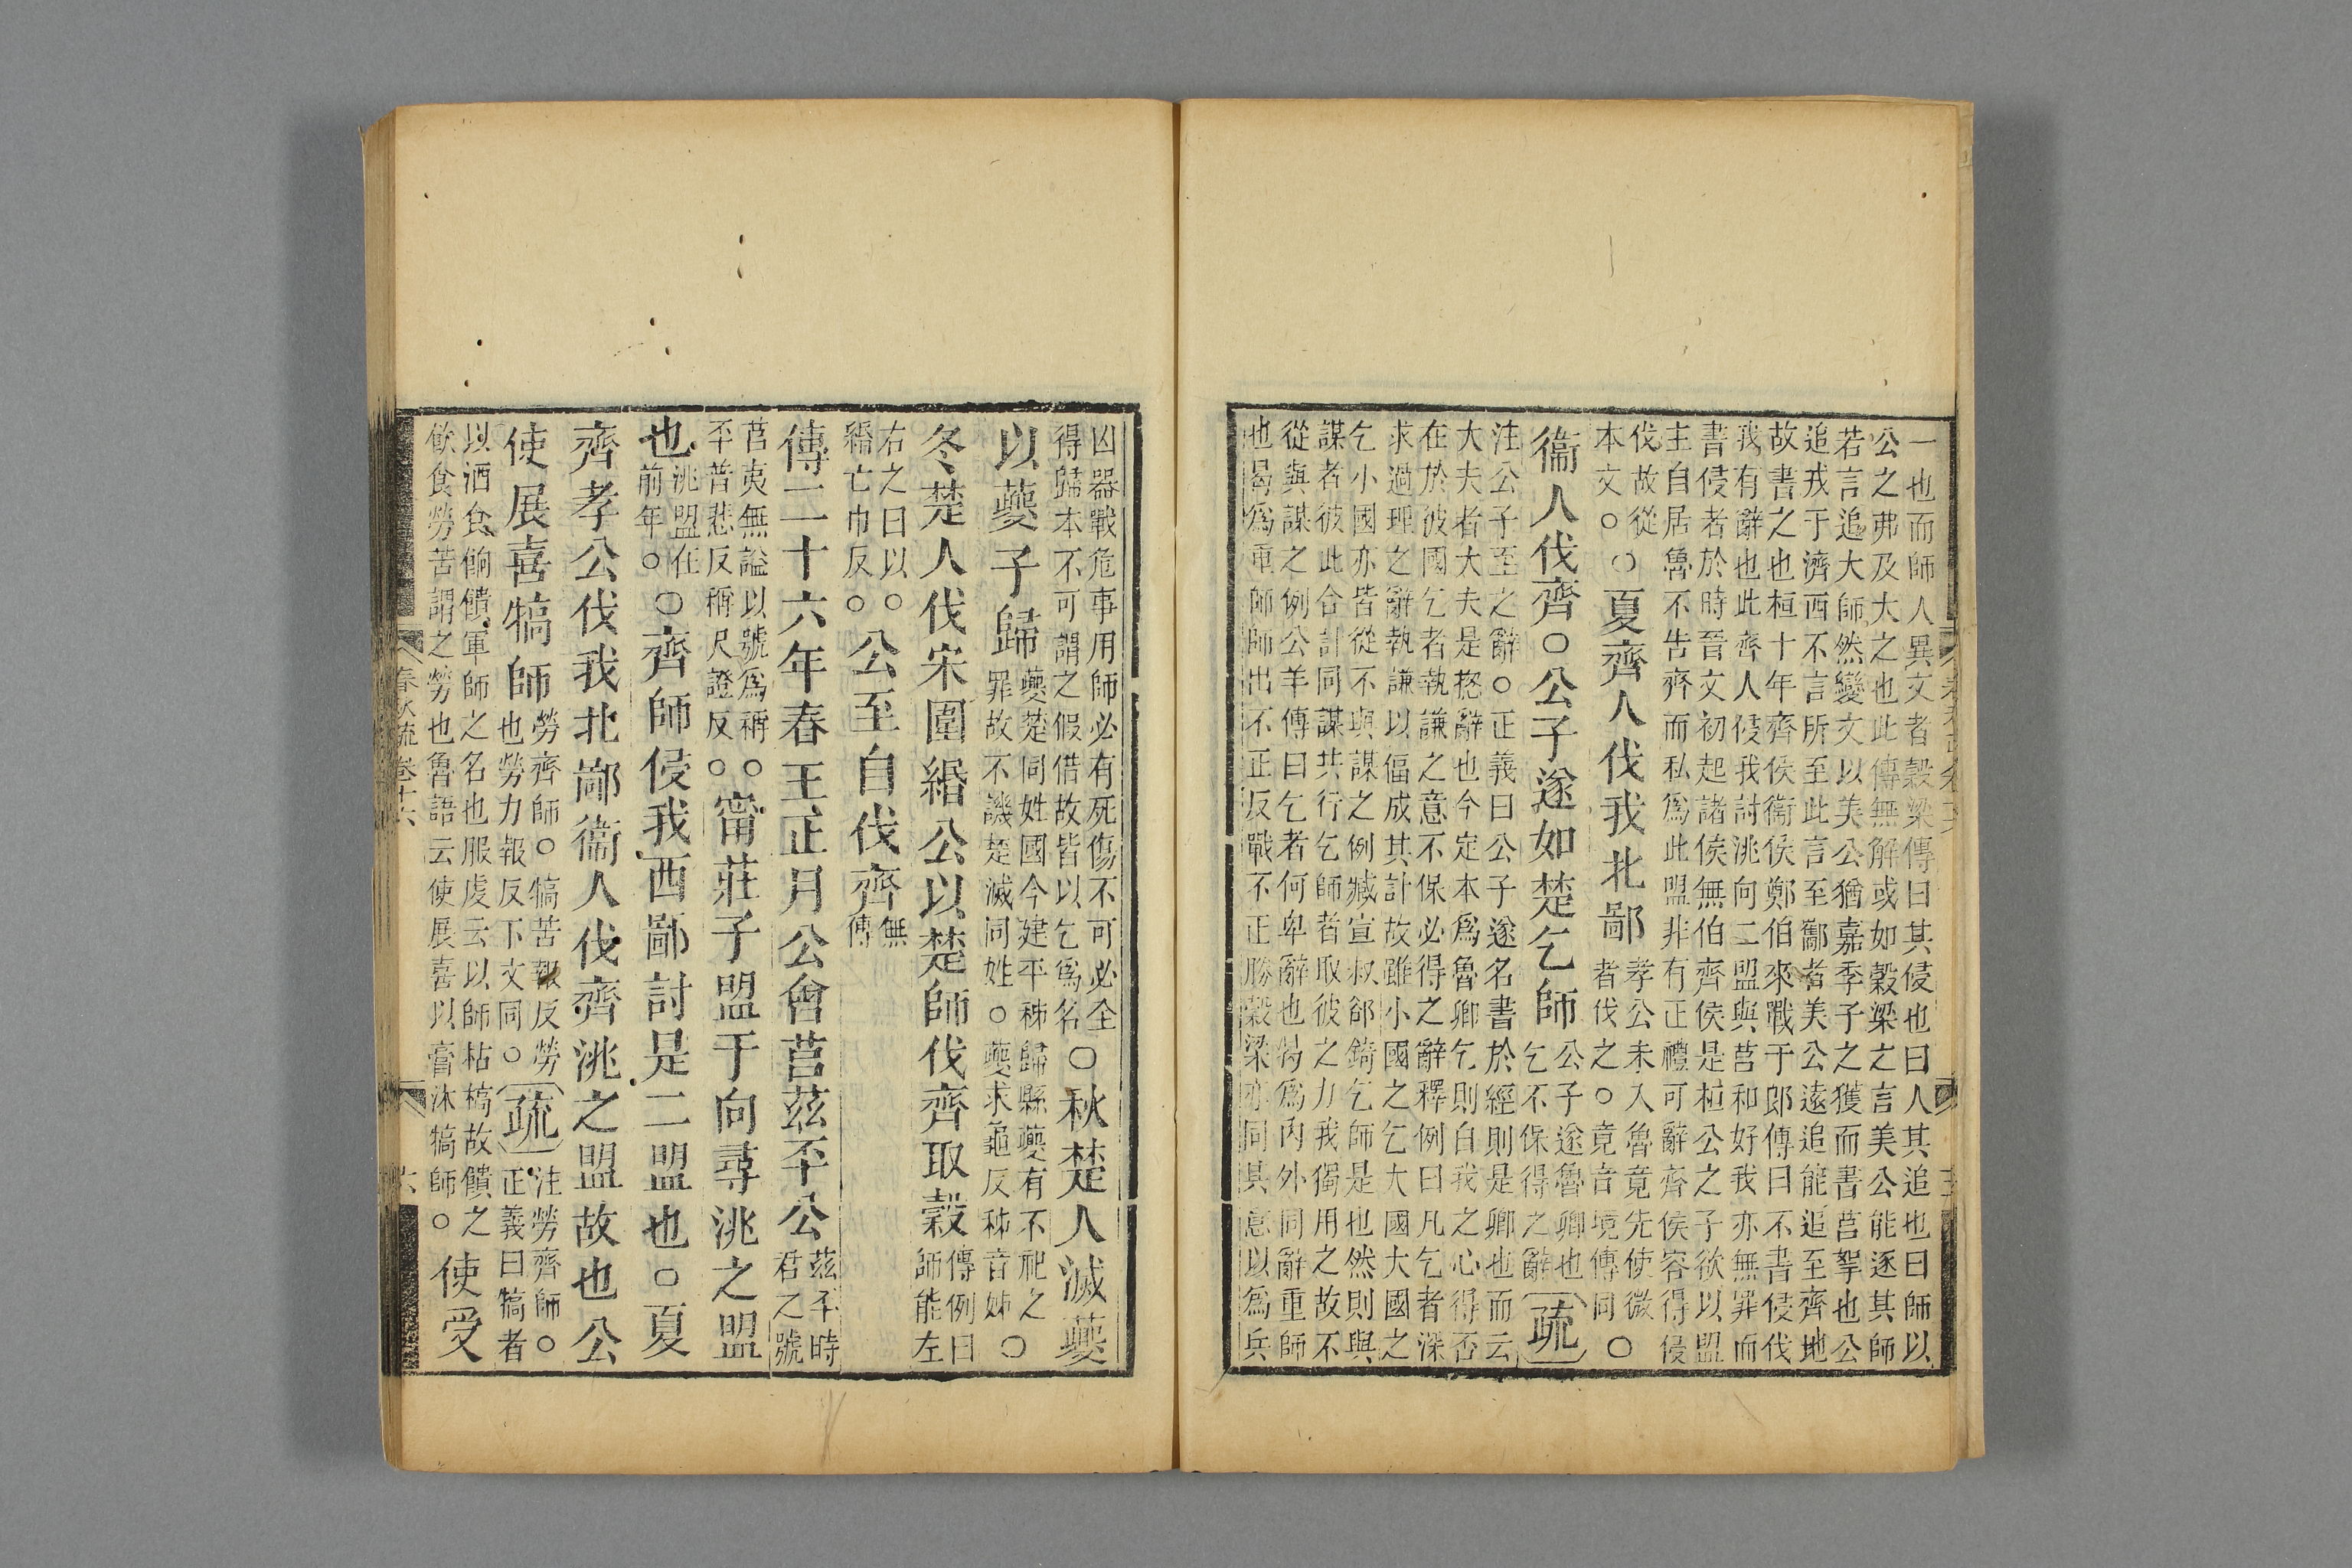 一也而師人異文者穀梁傳曰其侵也曰人其追也曰師以
公之弗及大之也此傳無解或如穀梁之言美公能逐其師
若言追大師然變文以美公猶嘉季子之獲而書莒挐也公
追戎于濟西不言所至此言至酅者美公遠追能追至齊地
故書之也桓十年齊侯衞侯鄭伯來戰于郎傳曰不書侵伐
我有辭也此齊人侵我討洮向二盟與莒和好我亦無罪而
書侵者於時晉文初起諸侯無伯齊侯是桓公之子欲以盟
主自居魯不告齊而私爲此盟非有正禮可辭齊侯容得侵
伐故從
本文○○夏齊人伐我北鄙孝公未入魯竟先使微
者伐之○竟音境傳同○
衞人伐齊○公子遂如楚乞師公子遂魯卿也
乞不保得之辭疏
注公子至之辭○正義曰公子遂名書於經則是卿也而云
大夫者大夫是揔辭也今定本爲魯卿乞則自我之心得否
在於彼國乞者執謙之意不保必得之辭釋例曰凡乞者深
求過理之辭執謙以偪成其計故雖小國之乞大國大國之
乞小國亦皆從不與謀之例臧宣叔郤錡乞師是也然則與
謀者彼此合計同謀共行乞師者取彼之力我獨用之故不
從與謀之例公羊傳曰乞者何卑辭也曷爲内外同辭重師
也曷爲重師師出不正反戰不正勝穀梁亦同其意以爲兵
凶器戰危事用師必有死傷不可必全
得歸本不可謂之假借故皆以乞爲名○秋楚人滅夔
以夔子歸夔楚同姓國今建平秭歸縣夔有不祀之
罪故不譏楚滅同姓○夔求龜反秭音姊○
冬楚人伐宋圍緡公以楚師伐齊取穀傳例曰
師能左
右之曰以○
緡亡巾反○公至自伐齊無
傳
傳二十六年春王正月公會莒茲丕公茲丕時
君之號
莒夷無諡以號爲稱○
丕普悲反稱尺證反○甯莊子盟于向尋洮之盟
也洮盟在
前年○○齊師侵我西鄙討是二盟也○夏
齊孝公伐我北鄙衞人伐齊洮之盟故也公
使展喜犒師勞齊師○犒苦報反勞
也勞力報反下文同○疏注勞齊師○
正義曰犒者
以酒食餉饋軍師之名也服虔云以師枯槁故饋之
飲食勞苦謂之勞也魯語云使展喜以膏沐犒師○使受
春秋疏卷十六
六